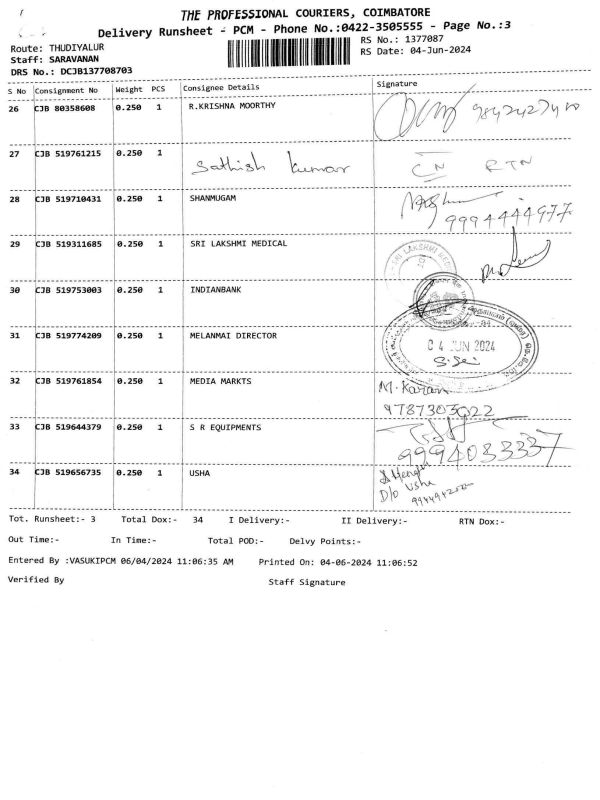 THE PROFESSIONAL COURIERS, COIMBATORE
Delivery Runsheet - PCM - Phone No.:0422-3505555 - Page No.:3
Route: THUDIYALUR RS No.: 1377087
Staff: SARAVANAN RS Date: 04-Jun-2024
DRS No.: DCJB137708703
S No Consignment No Weight PCS Consignee Details Signature
26 CJB 80358608 0.250 1 R.KRISHNA MOORTHY
27 CJB 519761215 0.250 1 Sathish Kumar CN RTN
28 CJB 519710431 0.250 1 SHANMUGAM
9994444977
29 CJB 519311685 0.250 1 SRI LAKSHMI MEDICAL
SRI LAKSHMI
30 CJB 519753003 0.250 1 INDIANBANK
31 CJB 519774209 0.250 1 MELANMAI DIRECTOR
04 JUN 2024
32 CJB 519761854 0.250 1 MEDIA MARKTS M. Karan
9787303022
33 CJB 519644379 0.250 1 S R EQUIPMENTS
9994033337
34 CJB 519656735 0.250 1 USHA
D/o Usha
Tot. Runsheet:- 3 Total Dox:- 34 I Delivery:- II Delivery:- RTN Dox:-
Out Time:- In Time:- Total POD:- Delvy Points:-
Entered By :VASUKIPCM 06/04/2024 11:06:35 AM Printed On: 04-06-2024 11:06:52
Verified By Staff Signature